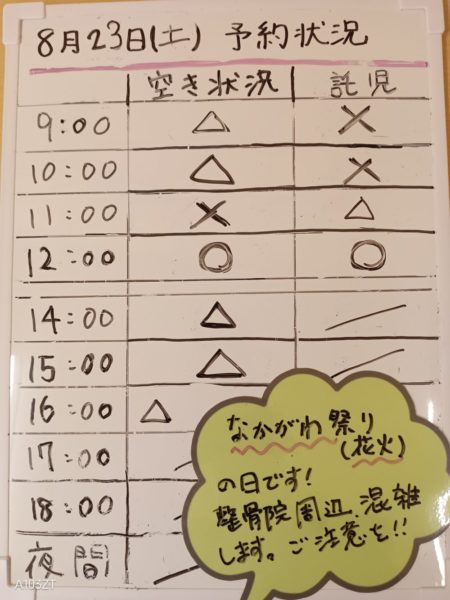 8月23日(土) 予約状況
空き状況 託児
9:00 △ ×
10:00 △ ×
11:00 × △
12:00 ○ ○
14:00 △ ／
15:00 △ ／
16:00 △
17:00
18:00
夜間
なかがわ祭り
(花火)
の日です!
整骨院周辺、混雑
します。ご注意を!!
A103ZT